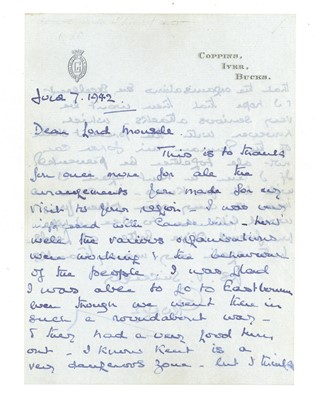 COPPINS,
IVER,
BUCKS.
June 7. 1942
Dear Lord Monsell
This is to thank
you once more for all the
arrangements you made for my
visit to your region - I was very
impressed with Canterbury - how
well the various organisations
were working & the behaviour
of the people. I was glad
I was able to go to Eastbourne
even though we went there in
such a roundabout way -
& they had a very good turn
out - I know Kent is a
very dangerous zone - but I think